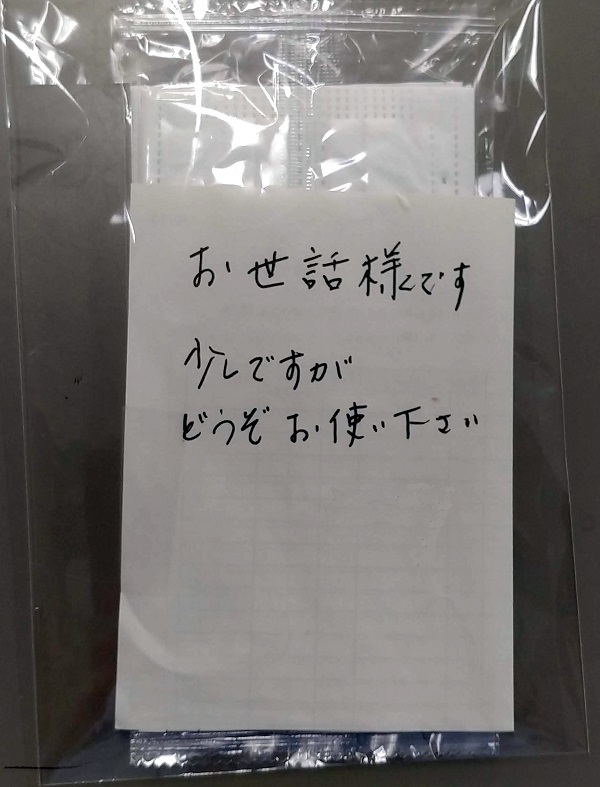 お世話様です
少しですが
どうぞお使い下さい